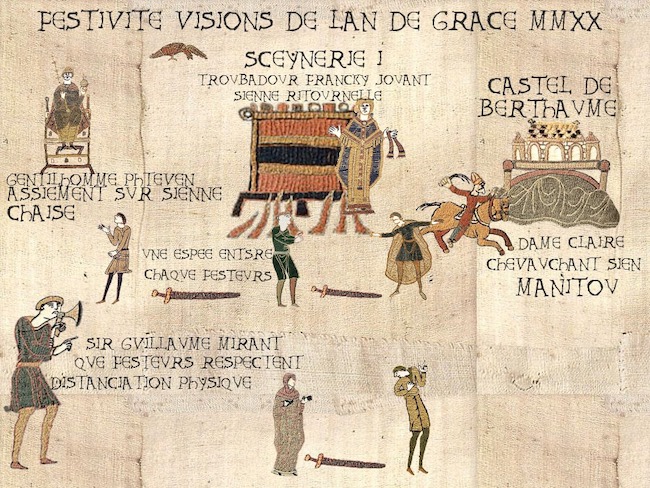 FESTIVITE VISIONS DE LAN DE GRACE MMXX
SCEYNERIE I
TROVBADOVR FRANCKY JOVANT
SIENNE RITOVRNELLE
CASTEL DE
BERTHAVME
GENTILHOMME PHIEVEN
ASSIEMENT SVR SIENNE
CHAISE
VNE ESPEE ENTSRE
CHAQVE FESTEVRS
DAME CLAIRE
CHEVAVCHANT SIEN
MANITOV
SIR GVILLAVME MIRANT
QVE FESTEVRS RESPECTENT
DISTANCIATION PHYSIQVE